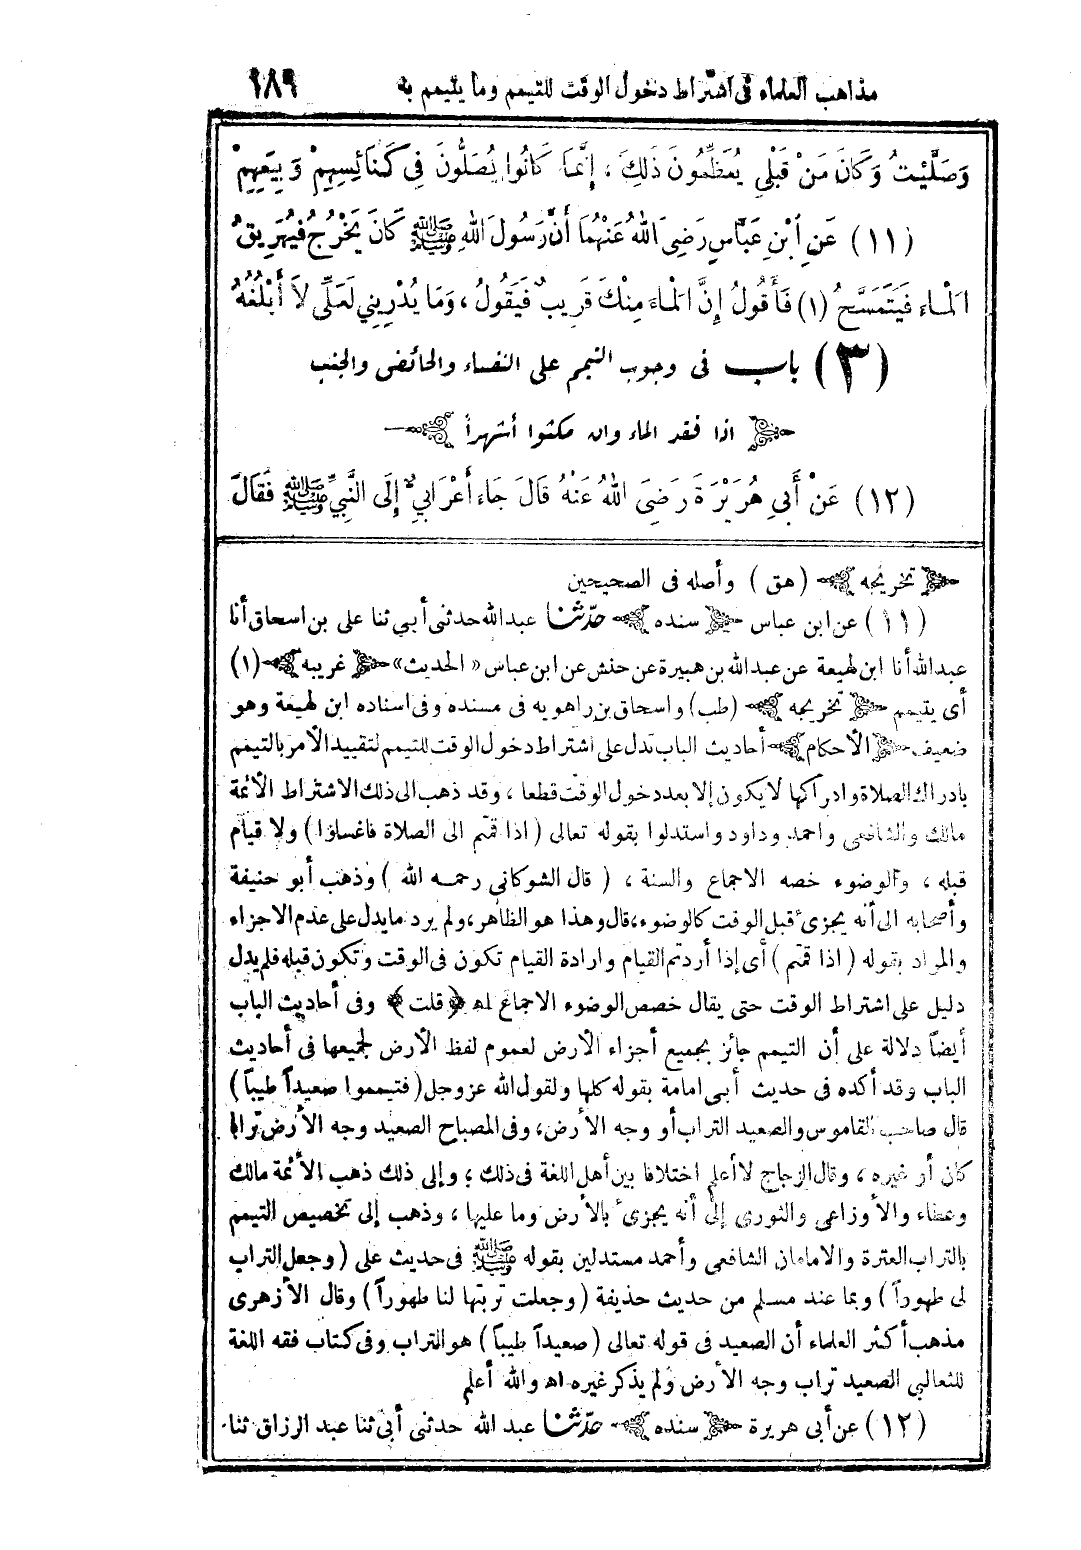 مذاهب العلماء في اشتراط دخول الوقت للتيمم وما يتيمم به ١٨٩
وَصَلَّيْتُ وَكَانَ مَنْ قَبْلِي يُعَظِّمُونَ ذَلِكَ ، إِنَّمَا كَانُوا يُصَلُّونَ فِي كَنَائِسِهِمْ وَبِيَعِهِمْ
(١١) عَنِ ابْنِ عَبَّاسٍ رَضِيَ اللهُ عَنْهُمَا أَنَّ رَسُولَ اللهِ ﷺ كَانَ يَخْرُجُ فَيُهَرِيقُ
الْمَاءَ فَيَتَمَسَّحُ (١) فَأَقُولُ إِنَّ الْمَاءَ مِنْكَ قَرِيبٌ فَيَقُولُ ، وَمَا يُدْرِينِي لَعَلِّي لَا أَبْلُغُهُ
(٣) باب فى وجوب التيمم على النفساء والحائض والجنب
اذا فقد الماء وان مكثوا أشهراً
(١٢) عَنْ أَبِي هُرَيْرَةَ رَضِيَ اللهُ عَنْهُ قَالَ جَاءَ أَعْرَابِيٌّ إِلَى النَّبِيِّ ﷺ فَقَالَ
تخريجه (هق) وأصله فى الصحيحين
(١١) عن ابن عباس سنده حدّثنا عبد الله حدثنى أبي ثنا على بن اسحاق أنا
عبد الله أنا ابن لهيعة عن عبد الله بن هبيرة عن حنش عن ابن عباس « الحديث » غريبه (١)
أى يتيمم تخريجه (طب) واسحاق بن راهويه فى مسنده وفى اسناده ابن لهيعة وهو
ضعيف الأحكام أحاديث الباب تدل على اشتراط دخول الوقت للتيمم لتقييد الأمر بالتيمم
بادراك الصلاة وادراكها لا يكون إلا بعد دخول الوقت قطعا ، وقد ذهب الى ذلك الاشتراط الأئمة
مالك والشافعى واحمد وداود واستدلوا بقوله تعالى (اذا قمتم الى الصلاة فاغسلوا) ولا قيام
قبله ، والوضوء خصه الاجماع والسنة ، (قال الشوكانى رحمه الله) وذهب أبو حنيفة
وأصحابه الى أنه يجزىء قبل الوقت كالوضوء، قال وهذا هو الظاهر، ولم يرد ما يدل على عدم الاجزاء
والمراد بقوله (اذا قمتم) أى إذا أردتم القيام وارادة القيام تكون فى الوقت وتكون قبله فلم يدل
دليل على اشتراط الوقت حتى يقال خصص الوضوء الاجماع اه (قلت) وفى أحاديث الباب
أيضاً دلالة على أن التيمم جائز بجميع أجزاء الأرض لعموم لفظ الأرض لجميعها فى أحاديث
الباب وقد أكده فى حديث أبى امامة بقوله كلها ولقول الله عز وجل (فتيمموا صعيداً طيباً)
قال صاحب القاموس والصعيد التراب أو وجه الأرض، وفى المصباح الصعيد وجه الأرض ترابا
كان أو غيره ، وقال الزجاج لا أعلم اختلافا بين أهل اللغة فى ذلك ؛ وإلى ذلك ذهب الأئمة مالك
وعطاء والأوزاعى والثورى إلى أنه يجزىء بالأرض وما عليها ، وذهب إلى تخصيص التيمم
بالتراب العترة والامامان الشافعى وأحمد مستدلين بقوله ﷺ فى حديث على (وجعل التراب
لى طهوراً) وبما عند مسلم من حديث حذيفة (وجعلت تربتها لنا طهوراً) وقال الأزهرى
مذهب أكثر العلماء أن الصعيد فى قوله تعالى (صعيداً طيباً) هو التراب وفى كتاب فقه اللغة
للثعالبي الصعيد تراب وجه الأرض ولم يذكر غيره اه والله أعلم
(١٢) عن أبى هريرة سنده حدّثنا عبد الله حدثنى أبى ثنا عبد الرزاق ثنا